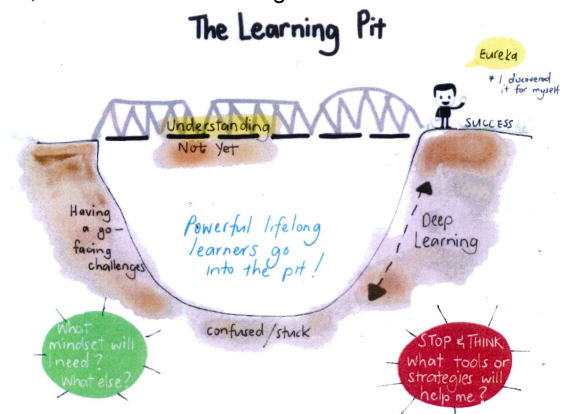 The Learning Pit
Eureka
* I discovered
it for myself
SUCCESS
Understanding
Not Yet
Having
a go -
facing
challenges
Powerful lifelong
learners go
into the pit!
Deep
Learning
confused/stuck
What
mindset will
I need?
What else?
STOP & THINK
What tools or
strategies will
help me?